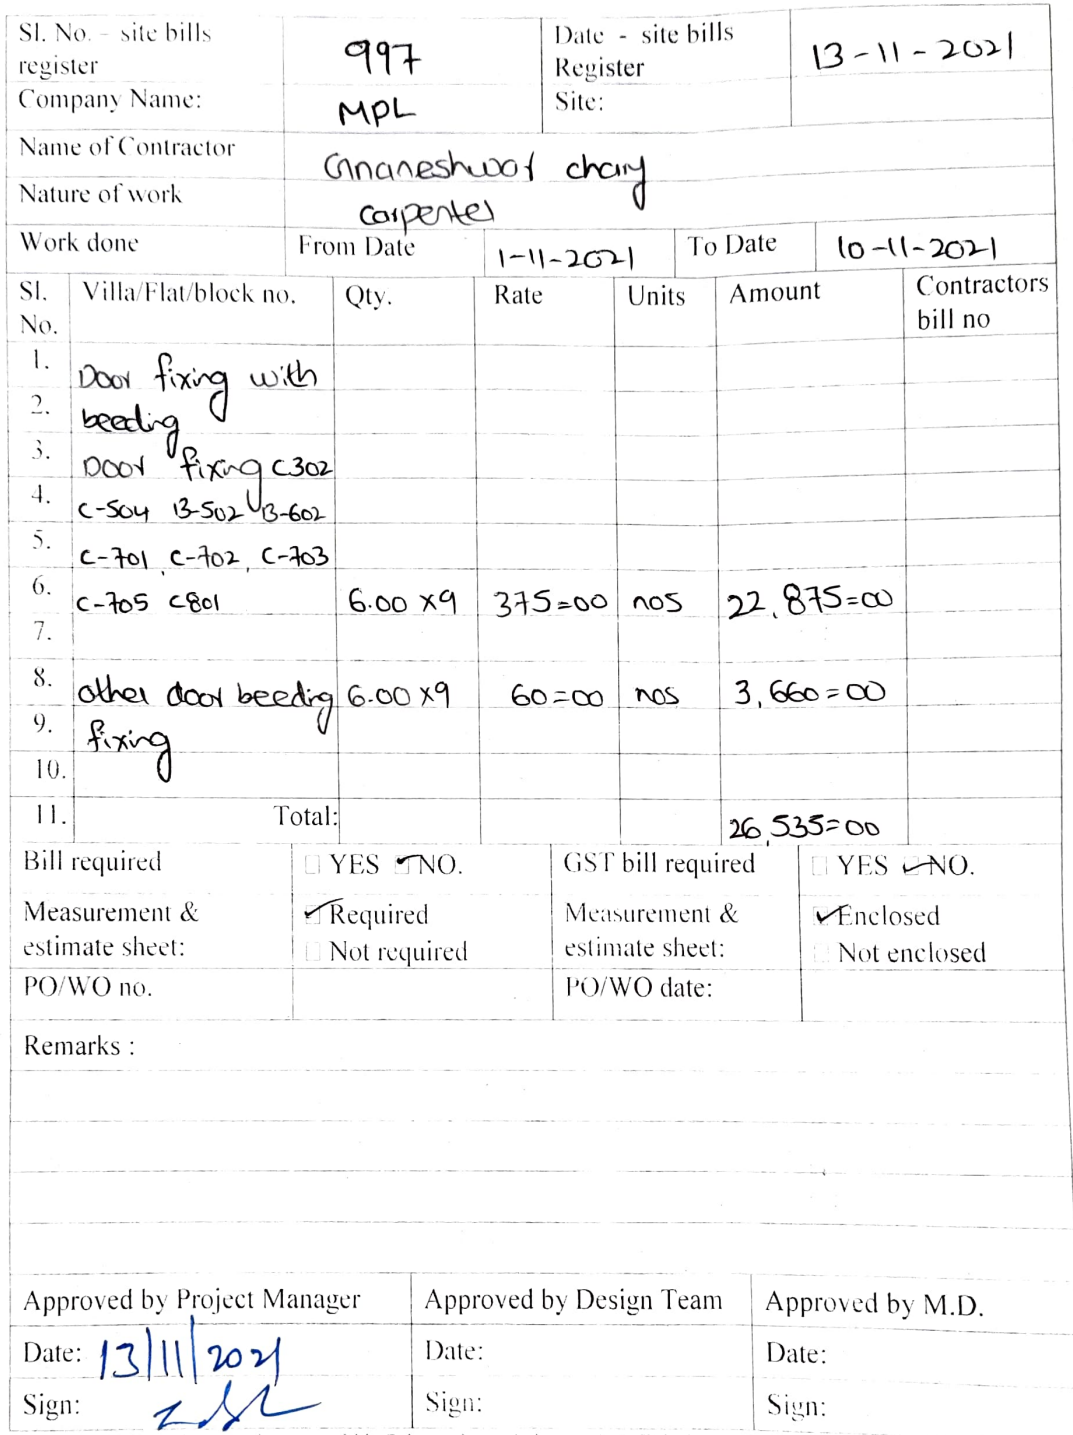 Sl. No. - site bills register 997 Date - site bills Register 13-11-2021
Company Name: MPL Site:
Name of Contractor Gnaneshwar chary
Nature of work carpenter
Work done From Date 1-11-2021 To Date 10-11-2021
Sl. No. Villa/Flat/block no. Qty. Rate Units Amount Contractors bill no
1. Door fixing with
2. beeding
3. Door fixing C302
4. C-504 B-502 B-602
5. C-701, C-702, C-703
6. C-705 C801 6.00 x9 375=00 nos 22,875=00
7.
8. other door beeding 6.00 x9 60=00 nos 3,660=00
9. fixing
10.
11. Total: 26,535=00
Bill required YES NO. GST bill required YES NO.
Measurement & estimate sheet: Required Measurement & estimate sheet: Enclosed
Not required Not enclosed
PO/WO no. PO/WO date:
Remarks :
Approved by Project Manager Approved by Design Team Approved by M.D.
Date: 13/11/2021 Date: Date:
Sign: Sign: Sign: